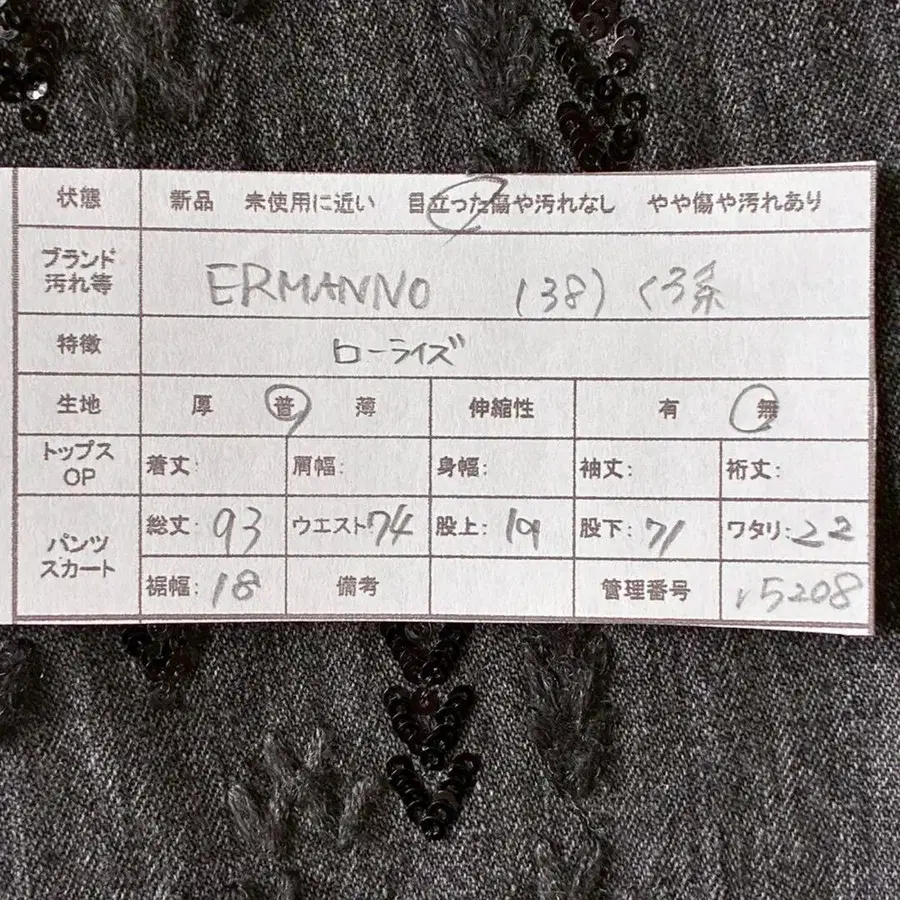 状態 新品 未使用に近い 目立った傷や汚れなし やや傷や汚れあり
ブランド
汚れ等 ERMANNO (38) くろ系
特徴 ローライズ
生地 厚 普 薄 伸縮性 有 無
トップス
OP 着丈: 肩幅: 身幅: 袖丈: 裄丈:
パンツ
スカート 総丈: 93 ウエスト: 74 股上: 19 股下: 71 ワタリ: 22
裾幅: 18 備考 管理番号 15208